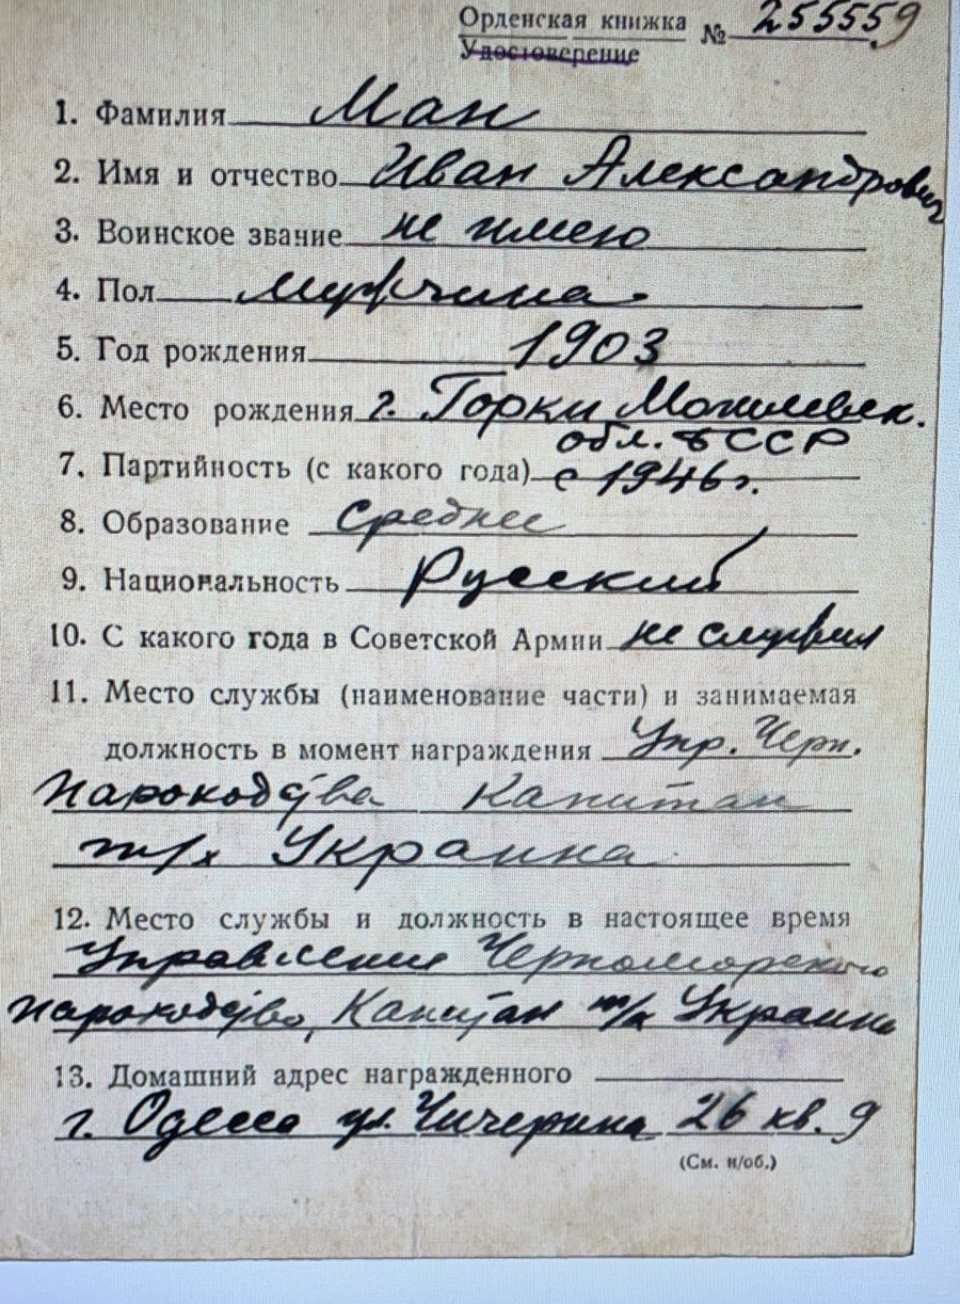 Орденская книжка № 255559
Удостоверение
1. Фамилия Ман
2. Имя и отчество Иван Александрович
3. Воинское звание не имею
4. Пол мужчина
5. Год рождения 1903
6. Место рождения г. Горки Могилевск.
обл. БССР
7. Партийность (с какого года) с 1946 г.
8. Образование Среднее
9. Национальность Русский
10. С какого года в Советской Армии не служил
11. Место службы (наименование части) и занимаемая
должность в момент награждения Упр. Черн.
Пароходства Капитан
т/х Украина
12. Место службы и должность в настоящее время
Управление Черноморского
пароходства, Капитан т/х Украина
13. Домашний адрес награжденного
г. Одесса ул. Чичерина 26 кв. 9
(См. н/об.)